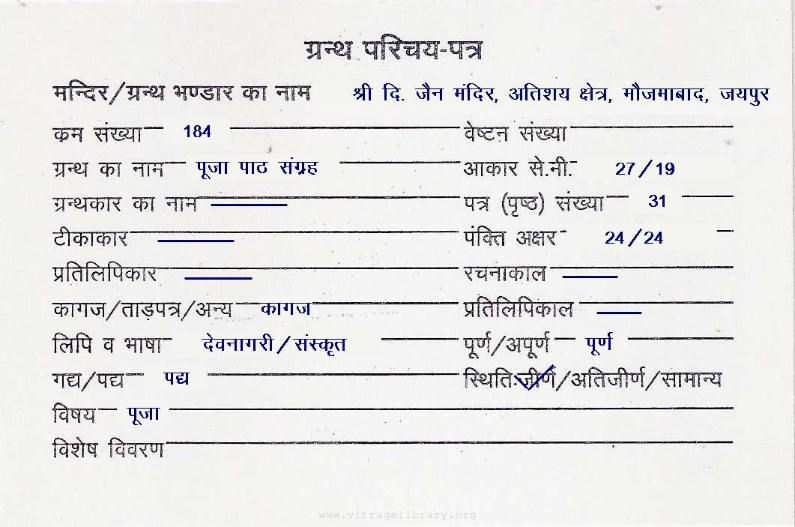 ग्रन्थ परिचय-पत्र
मन्दिर/ग्रन्थ भण्डार का नाम श्री दि. जैन मंदिर, अतिशय क्षेत्र, मौजमाबाद, जयपुर
कम संख्या 184 वेष्टन संख्या
ग्रन्थ का नाम पूजा पाठ संग्रह आकार से.नी. 27/19
ग्रन्थकार का नाम पत्र (पृष्ठ) संख्या 31
टीकाकार पंक्ति अक्षर 24/24
प्रतिलिपिकार रचनाकाल
कागज/ताड़पत्र/अन्य कागज प्रतिलिपिकाल
लिपि व भाषा देवनागरी/संस्कृत पूर्ण/अपूर्ण पूर्ण
गद्य/पद्य पद्य स्थितिः जीर्ण/अतिजीर्ण/सामान्य
विषय पूजा
विशेष विवरण
www.vitragelibrary.org